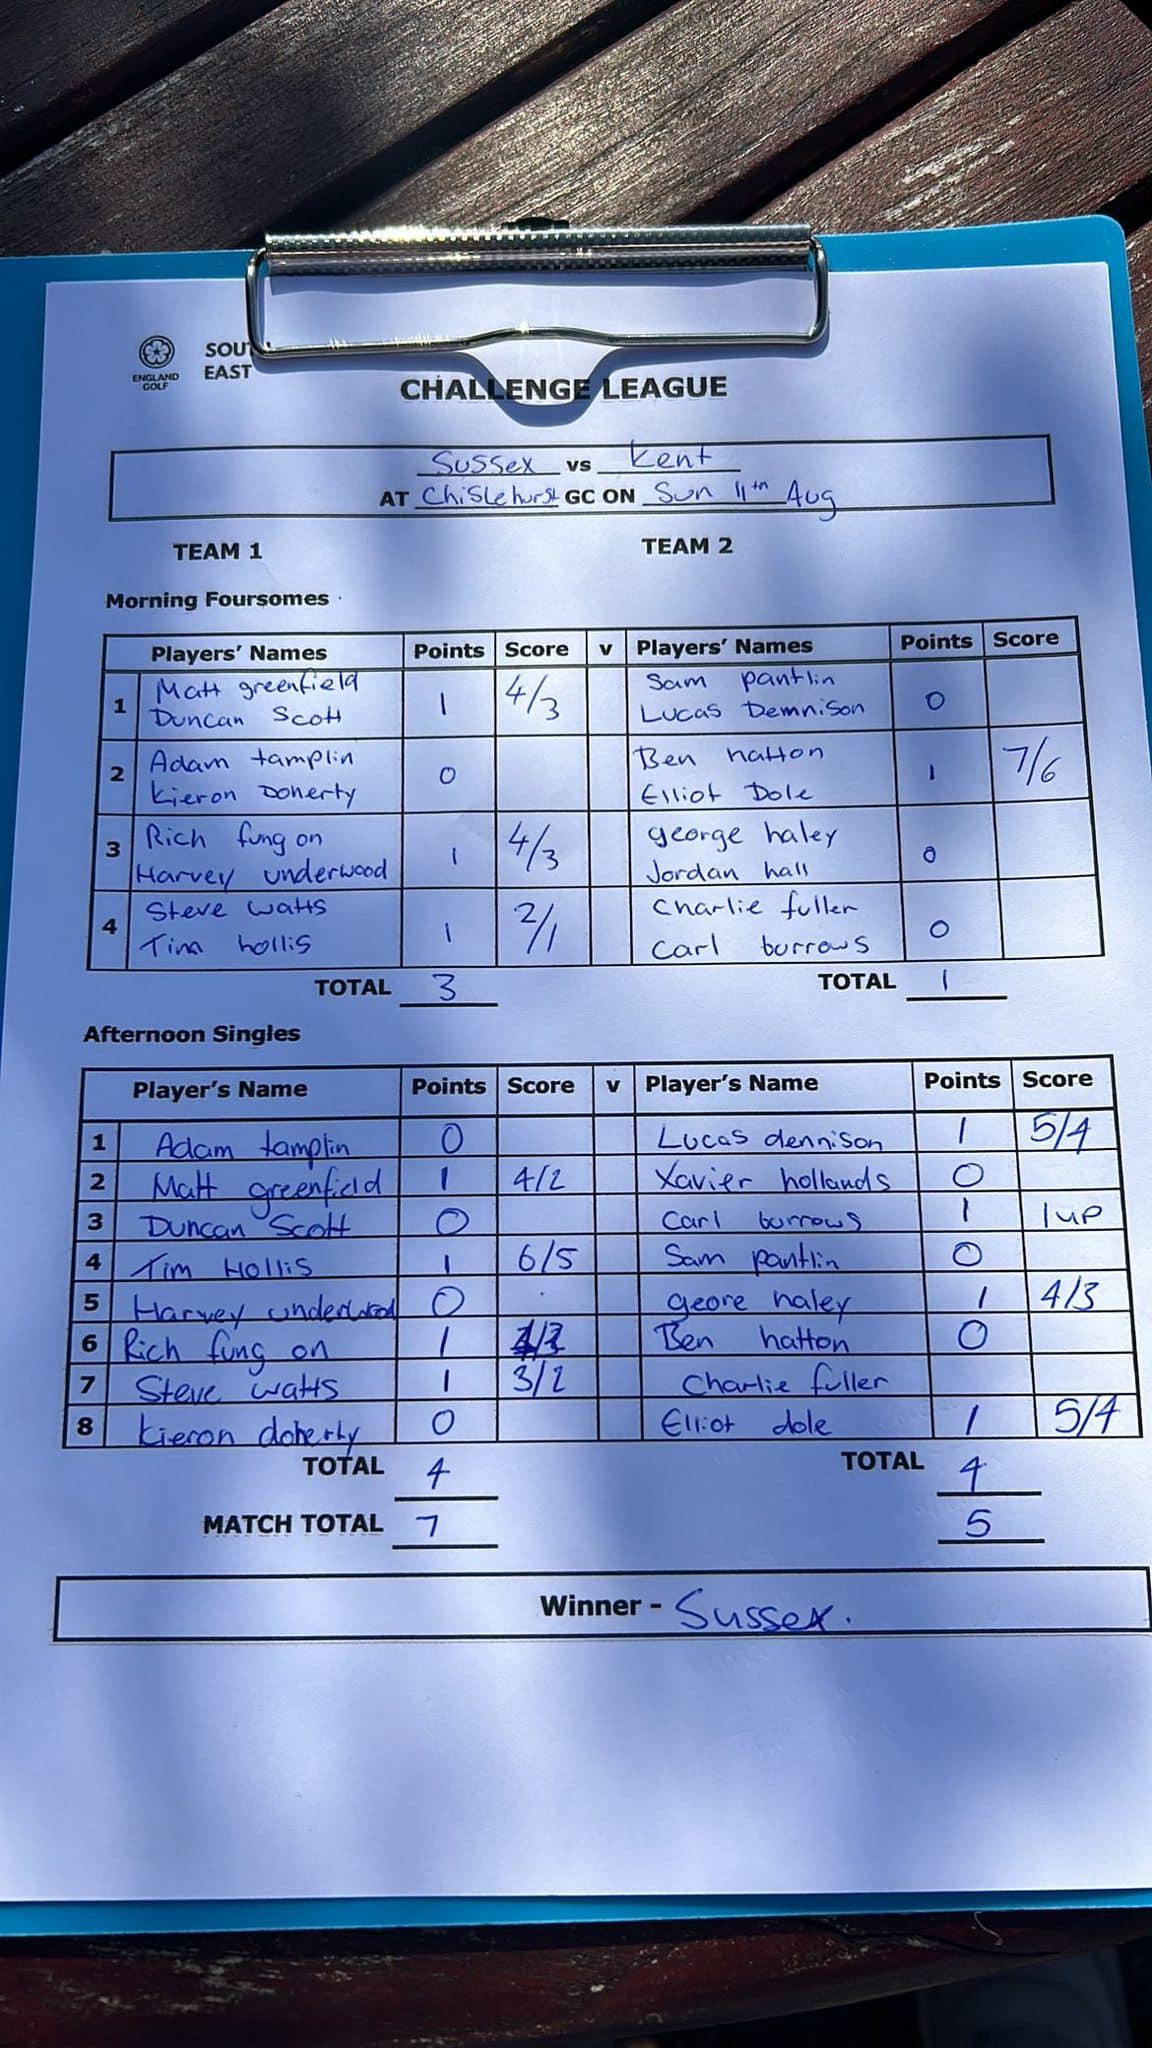 ENGLAND
GOLF
SOUT
EAST
CHALLENGE LEAGUE
Sussex vs Kent
AT Chislehurst GC ON Sun 11th Aug
TEAM 1 TEAM 2
Morning Foursomes
Players' Names Points Score v Players' Names Points Score
1 Matt greenfield 1 4/3 Sam pantlin 0
Duncan Scott Lucas Demnison
2 Adam tamplin 0 Ben hatton 1 7/6
Kieron Doherty Elliot Dole
3 Rich fung on 1 4/3 george haley 0
Harvey underwood Jordan hall
4 Steve watts 1 2/1 Charlie fuller 0
Tim hollis Carl burrows
TOTAL 3 TOTAL 1
Afternoon Singles
Player's Name Points Score v Player's Name Points Score
1 Adam tamplin 0 Lucas dennison 1 5/4
2 Matt greenfield 1 4/2 Xavier hollands 0
3 Duncan Scott 0 Carl burrows 1 1up
4 Tim Hollis 1 6/5 Sam pantlin 0
5 Harvey underwood 0 geore haley 1 4/3
6 Rich fung on 1 Ben hatton 0
7 Steve watts 1 3/2 Charlie fuller
8 Kieron doherty 0 Elliot dole 1 5/4
TOTAL 4 TOTAL 4
MATCH TOTAL 7 5
Winner - Sussex.